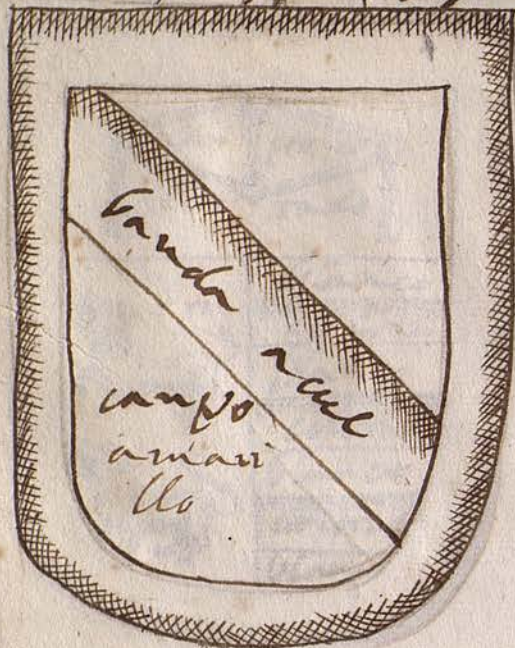 banda acul
campo
amari
llo